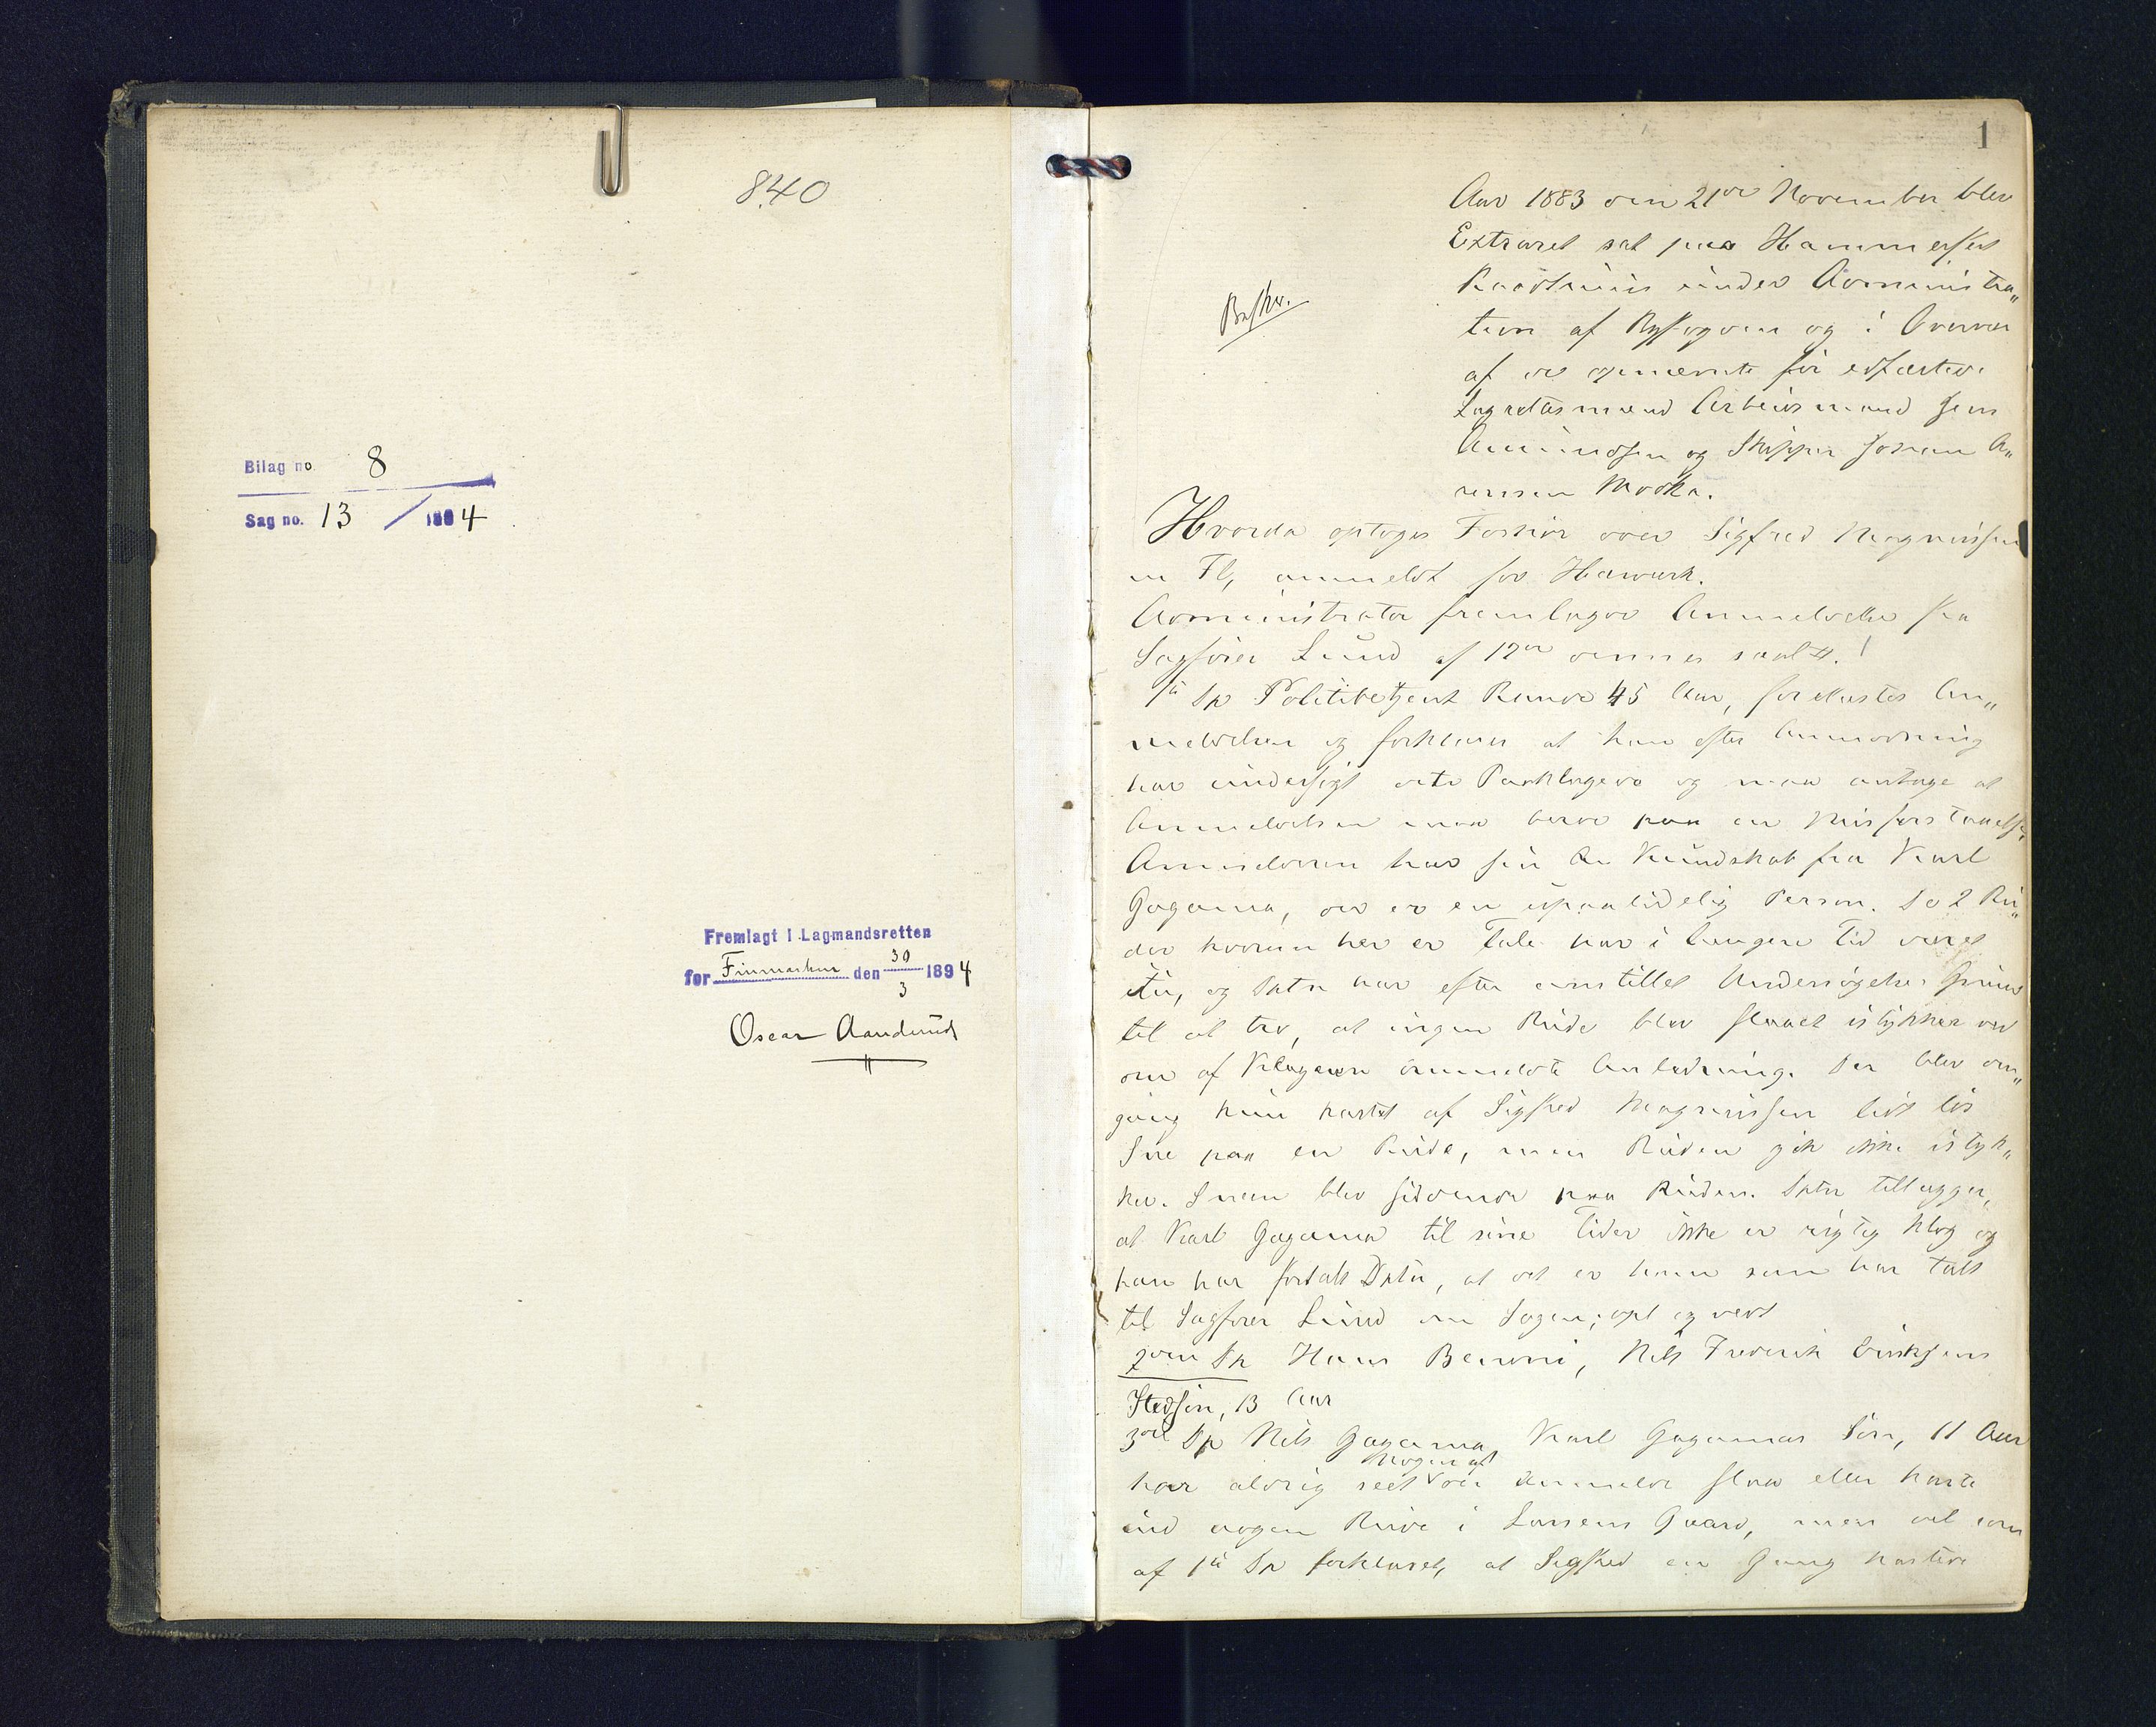 840
Bilag no 8
Sag no. 13 / 1894
Fremlagt i Lagmandsretten
for Finmarken den 30/3 1894
Oscar Aanderud
1
Aar 1883 den 21de November blev
Extraret sat paa Hammerfest
Raadhuus under Administra„
tion af Byfogden og i Overvær
af de opnævnte før edfæstede
Lagrettesmænd Arbeidsmand Jens
Amundsen og Skipper Johan A„
rensen
Beskr.
Hvorda optoges Forhør over Sigfred Magnussen
m Fl, anmeldt for Hærværk.
Administrator fremlagde Anmeldelse fra
Sagfører Lund af 12de dennes saal.
1ste Dp Politibetjent 45 Aar, forelæstes An„
meldelsen og forklarer at han efter Anmodning
har undersøgt dette Parklagede og maa antage at
Anmeldelsen maa bero paa en Misforstaaelse.
Anmelderen har sin Kundskab fra Karl
Gagama, der er en upaalidelig Person. De 2 Ru„
der hvorom her er Tale har i længere Tid været
itu, og Dptn har efter anstillet Undersøgelse Grund
til at tro, at ingen Rude blev slaaet istykker ved
den af Klageren anmeldte Anledning. Der blev den„
gang kun kastet af Sigfred Magnussen lidt løs
Sne paa en Rude, men Ruden gik ikke istyk„
ker. Sneen blev siddende paa Ruden. Dptn tillægger,
at Karl Gagama til sine Tider ikke er rigtig klog og
han har fortalt Dptn, at det er ham som har talt
til Sagfører Lund om Sagen; opl og vedt
2den Dp Hans Benoni, Nils Frederik Eriksens
Stedsøn, 13 Aar
3die Dp Nils Gagama, Karl Gagamas Søn, 11 Aar
nogen af
har aldrig seet de Anmeldte slaa eller kaste
ind nogen Rude i Larsens Gaard, men vel som
af 1ste Dp forklaret, at Sigfred en Gang kastede